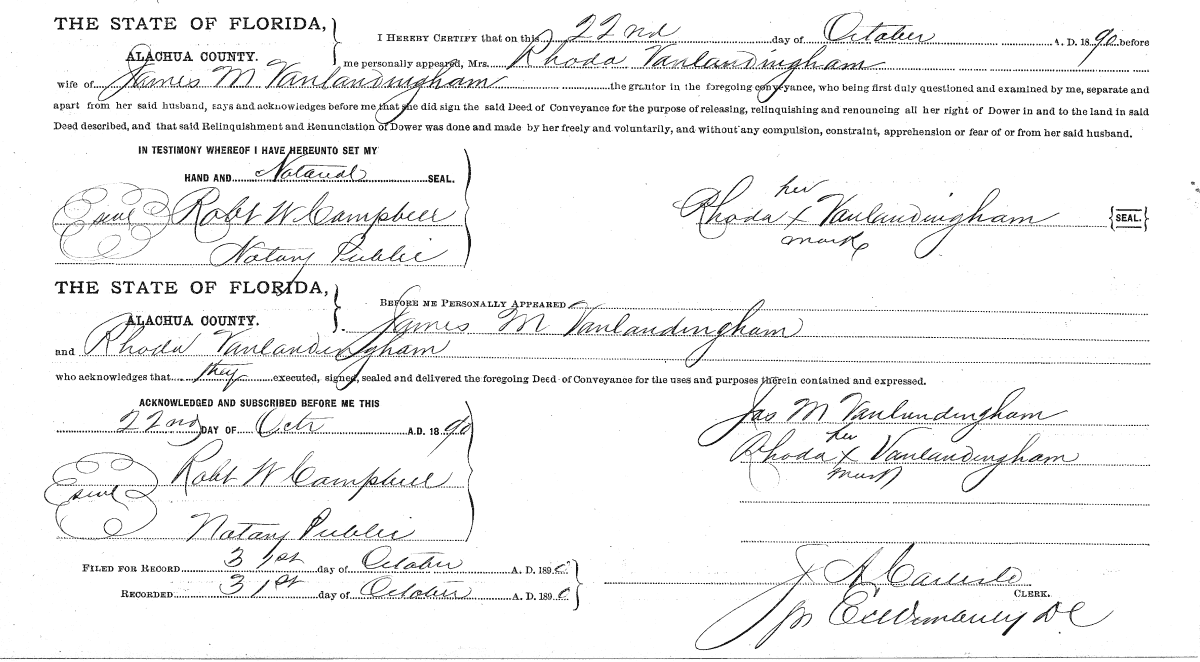 THE STATE OF FLORIDA,
ALACHUA COUNTY.
I HEREBY CERTIFY that on this 22nd day of October A. D. 1890 before
me personally appeared, Mrs. Rhoda Vanlandingham
wife of James M Vanlandingham the grantor in the foregoing conveyance, who being first duly questioned and examined by me, separate and
apart from her said husband, says and acknowledges before me that she did sign the said Deed of Conveyance for the purpose of releasing, relinquishing and renouncing all her right of Dower in and to the land in said
Deed described, and that said Relinquishment and Renunciation of Dower was done and made by her freely and voluntarily, and without any compulsion, constraint, apprehension or fear of or from her said husband.
IN TESTIMONY WHEREOF I HAVE HEREUNTO SET MY
HAND AND Notarial SEAL.
Seal Robt W Campbell
Notary Public
her
Rhoda x Vanlandingham {SEAL.}
mark
THE STATE OF FLORIDA,
ALACHUA COUNTY.
BEFORE ME PERSONALLY APPEARED
James M Vanlandingham
and Rhoda Vanlandingham
who acknowledges that they executed, signed, sealed and delivered the foregoing Deed of Conveyance for the uses and purposes therein contained and expressed.
ACKNOWLEDGED AND SUBSCRIBED BEFORE ME THIS
22nd DAY OF Octr A.D. 1890
Seal Robt W Campbell
Notary Public
Jas M Vanlandingham
her
Rhoda x Vanlandingham
mark
FILED FOR RECORD 31st day of October A. D. 1890
RECORDED 31st day of October A. D. 1890
J A Carlisle
CLERK.
pr DC